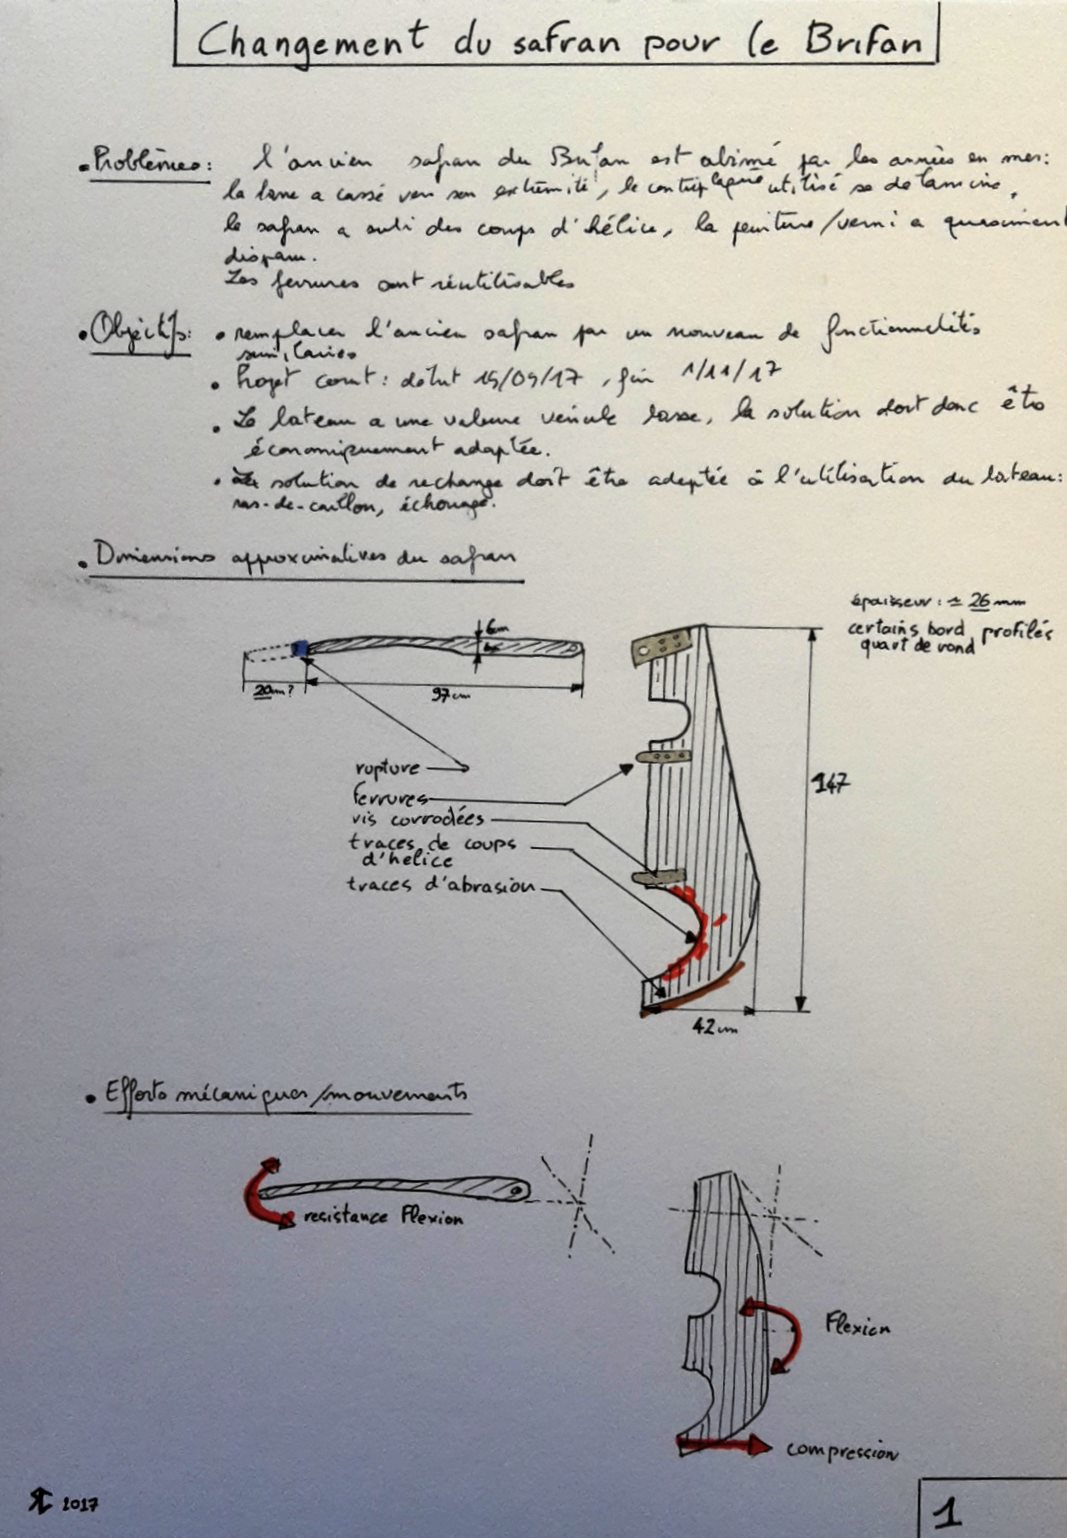 Changement du safran pour le Brifan
• Problèmes: l'ancien safran du Brifan est abimé par les années en mer:
la barre a cassé vers son extrémité, le contreplaqué utilisé se délamine,
le safran a subi des coups d'hélice, la peinture/verni a quasiment
disparu.
Les ferrures sont réutilisables
• Objectifs: • remplacer l'ancien safran par un nouveau de fonctionnalités
similaires
• Projet court: début 15/09/17, fin 1/11/17
• Le bateau a une valeur vénale basse, la solution doit donc être
économiquement adaptée.
• La solution de rechange doit être adaptée à l'utilisation du bateau:
ras-de-caillon, échouage.
• Dimensions approximatives du safran
épaisseur: ≈ 26 mm
certains bord profilés
quart de rond
6cm
20cm?
97cm
rupture
ferrures
vis corrodées
traces de coups
d'hélice
traces d'abrasion
147
42cm
• Efforts mécaniques/mouvements
resistance Flexion
Flexion
compression
2017
1